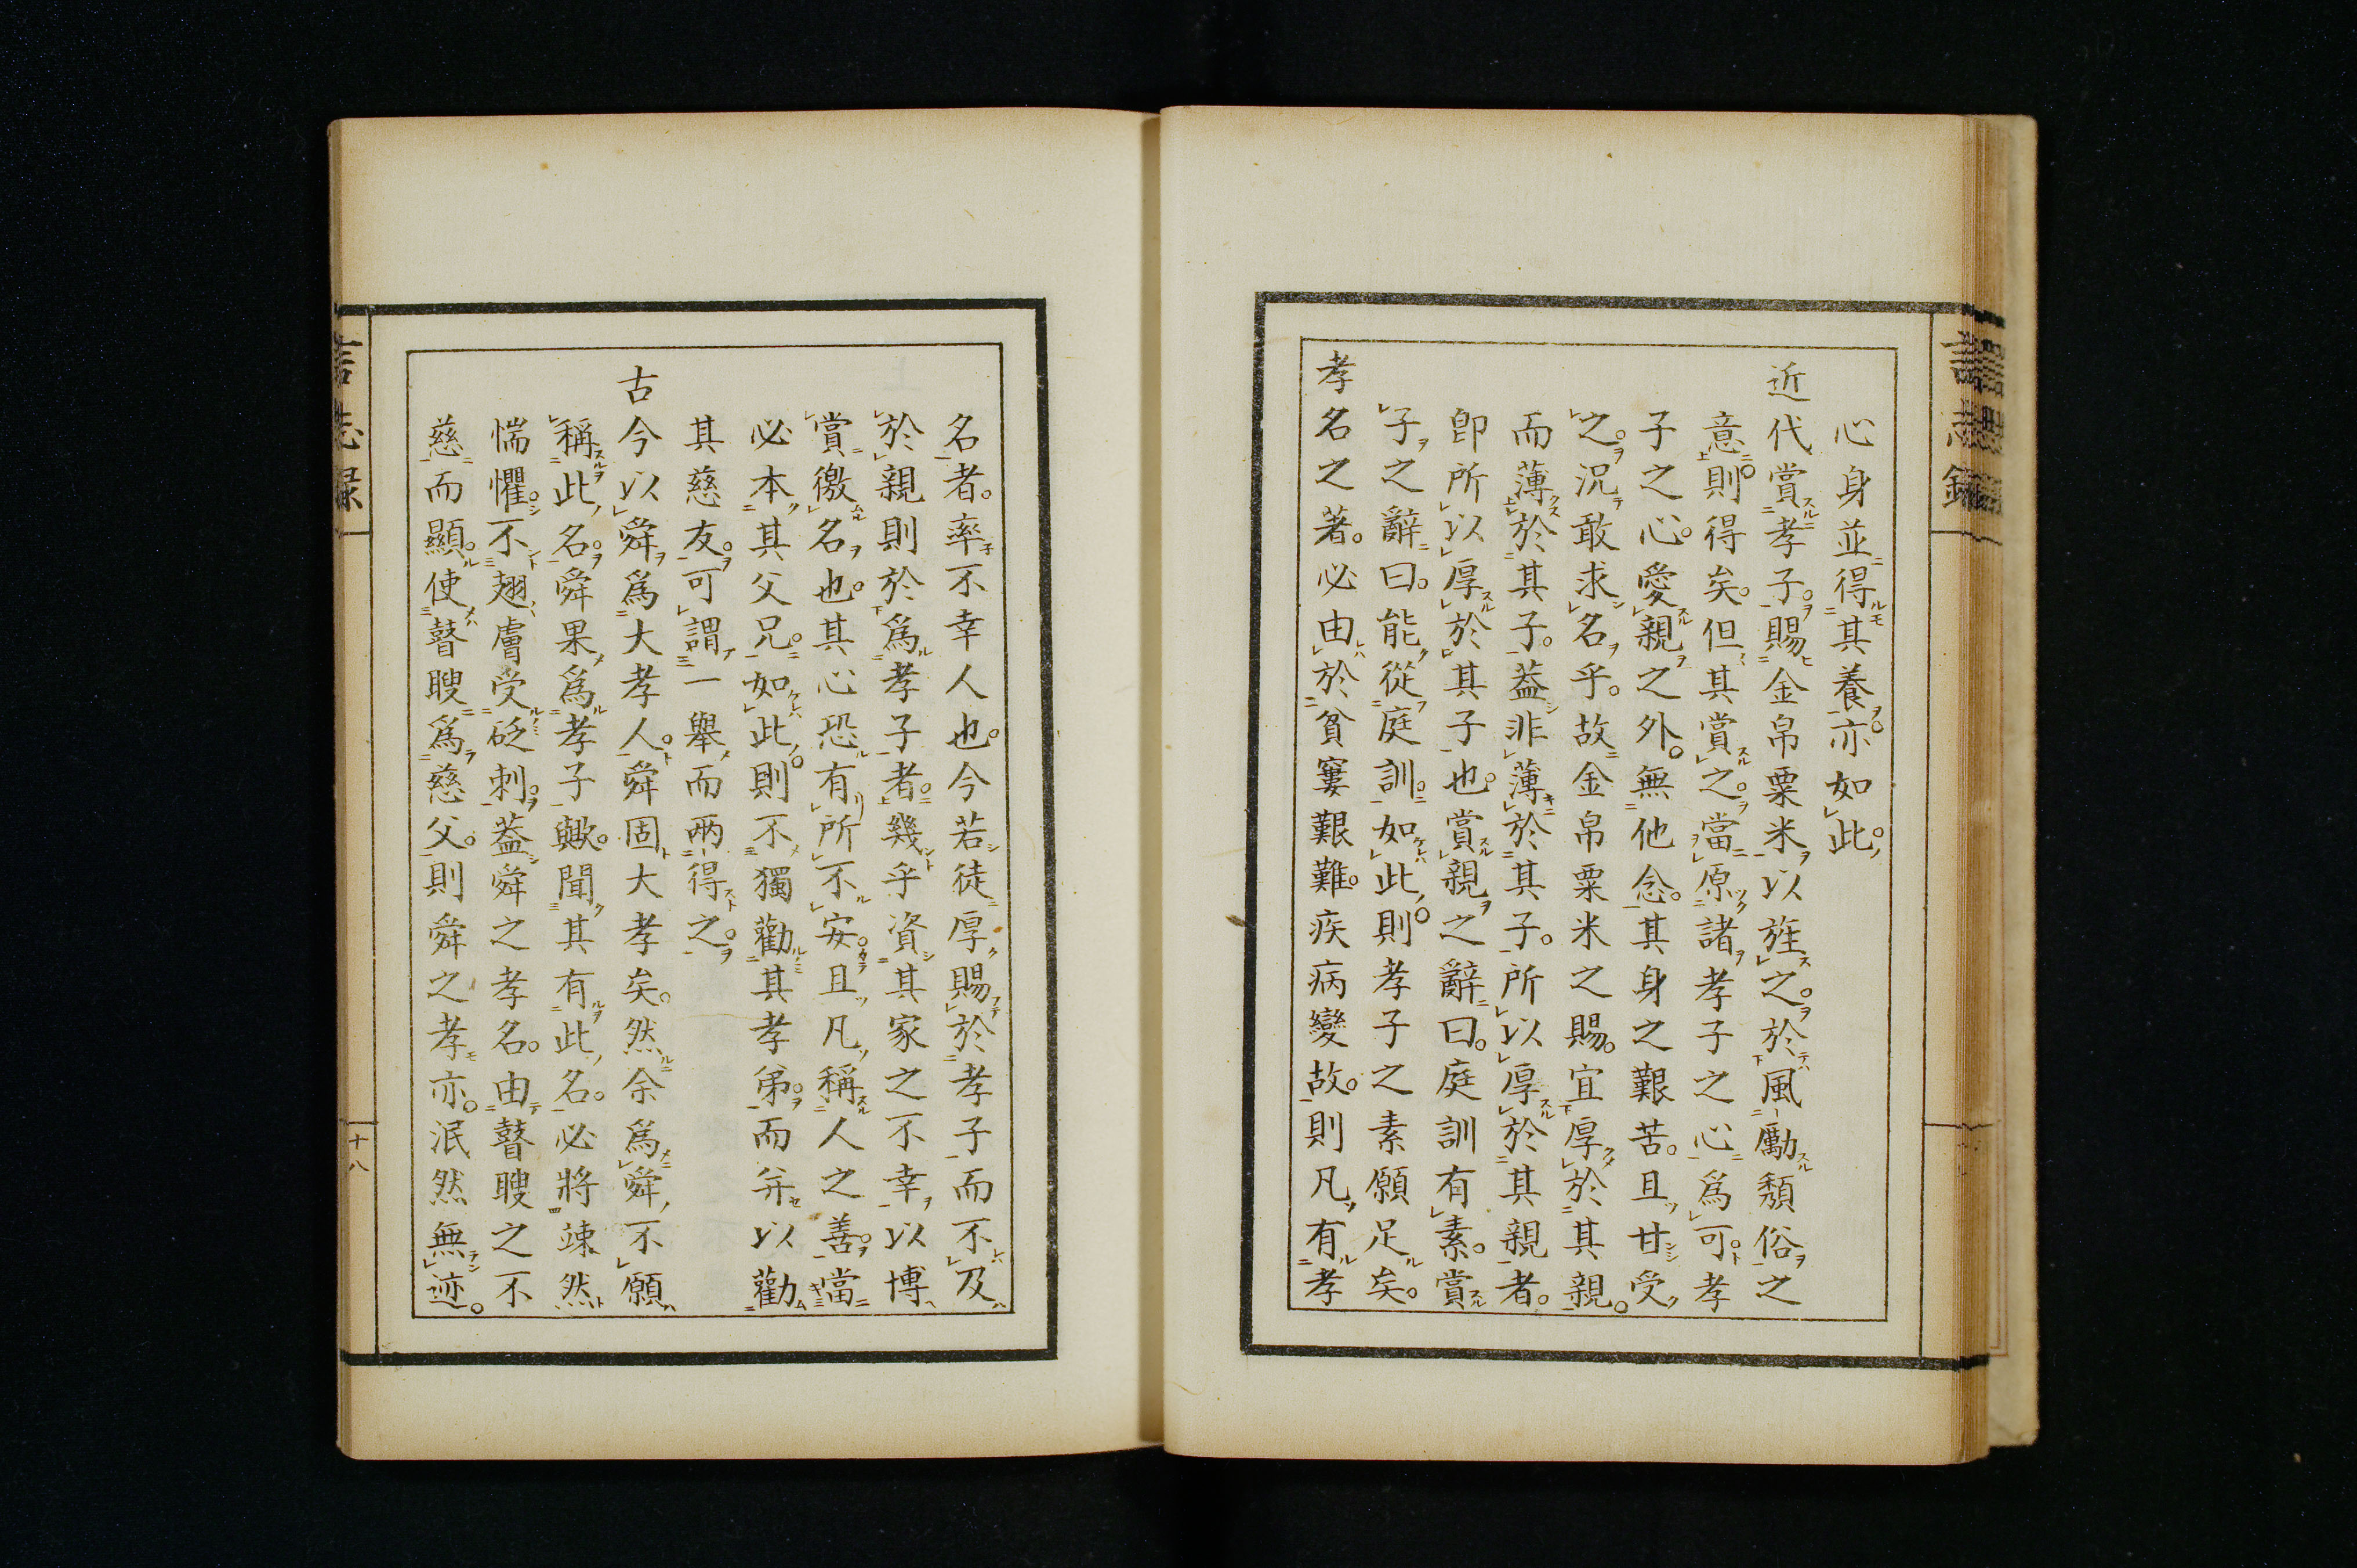 心身並得其養亦如此
近代賞孝子賜金帛粟米以旌之於風勵頽俗之
意則得矣但其賞之當原諸孝子之心爲可孝
子之心愛親之外無他念其身之艱苦且甘受
之況敢求名乎故金帛粟米之賜宜厚於其親
而薄於其子蓋非薄於其子所以厚於其親者
卽所以厚於其子也賞親之辭曰庭訓有素賞
子之辭曰能從庭訓如此則孝子之素願足矣
孝名之著必由於貧窶艱難疾病變故則凡有孝
名者率不幸人也今若徒厚賜於孝子而不及
於親則於爲孝子者幾乎資其家之不幸以博
賞徼名也其心恐有所不安且凡稱人之善當
必本其父兄如此則不獨勸其孝弟而并以勸
其慈友可謂一舉而兩得之
古今以舜爲大孝人舜固大孝矣然余爲舜不願
稱此名舜果爲孝子歟聞其有此名必將竦然
惴懼不翅膚受砭刺蓋舜之孝名由瞽瞍之不
慈而顯使瞽瞍爲慈父則舜之孝亦泯然無迹
言志錄
十八